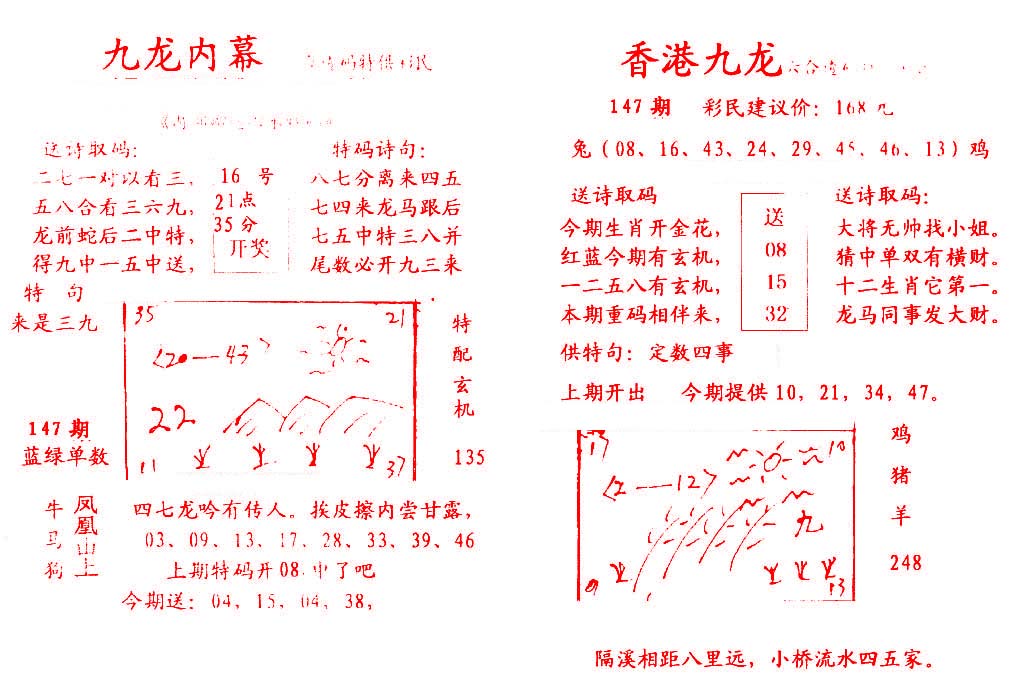 九龙内幕
送诗取码：
二七一对以看三，
五八合看三六九，
龙前蛇后二中特，
得九中一五中送，
特 句
来是三九
16 号
21点
35分
开奖
特码诗句：
八七分离来四五
七四来龙马跟后
七五中特三八并
尾数必开九三来
147 期
蓝绿单数
35
21
〈20—43〉
22
11
37
特
配
玄
机
135
牛
马
狗
凤凰山上
四七龙吟有传人。挨皮擦内尝甘露，
03、09、13、17、28、33、39、46
上期特码开08.中了吧
今期送：04，15，04，38，
香港九龙
147 期 彩民建议价：168元
兔（08、16、43、24、29、45、46、13）鸡
送诗取码
今期生肖开金花，
红蓝今期有玄机，
一二五八有玄机，
本期重码相伴来，
送
08
15
32
送诗取码：
大将无帅找小姐。
猜中单双有横财。
十二生肖它第一。
龙马同事发大财。
供特句：定数四事
上期开出 今期提供 10，21，34，47。
17
10
〈2—12〉
九
9
13
鸡
猪
羊
248
隔溪相距八里远，小桥流水四五家。